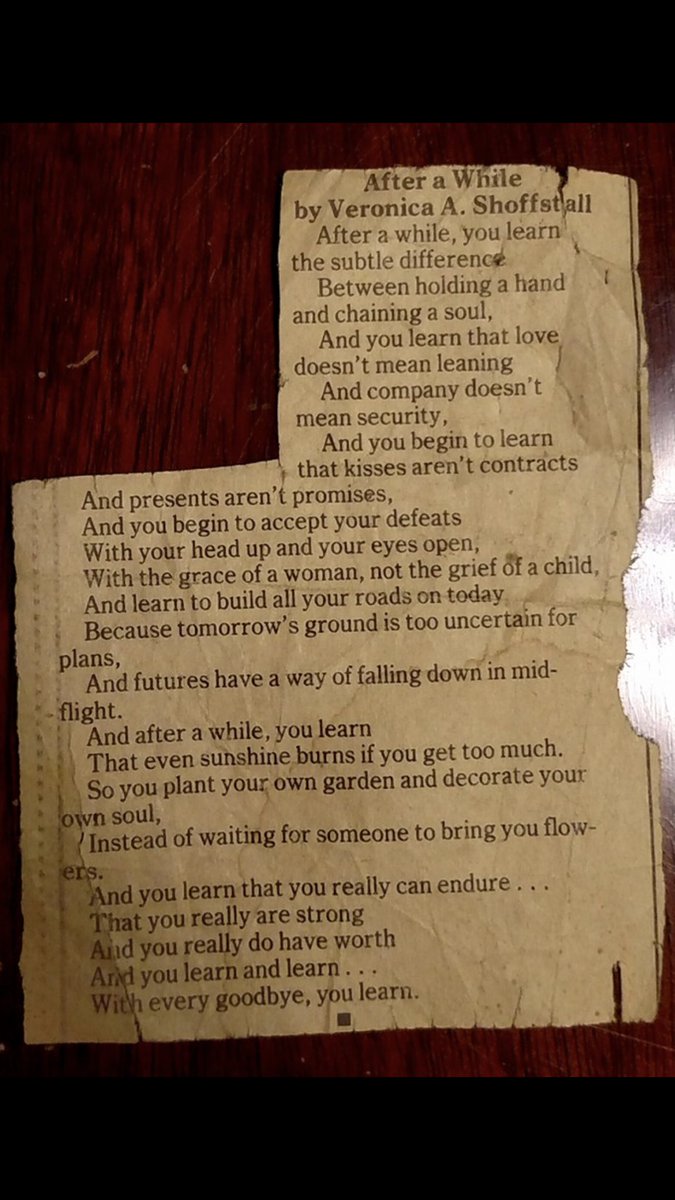 After a While
by Veronica A. Shoffstall
After a while, you learn
the subtle difference
Between holding a hand
and chaining a soul,
And you learn that love
doesn't mean leaning
And company doesn't
mean security,
And you begin to learn
that kisses aren't contracts
And presents aren't promises,
And you begin to accept your defeats
With your head up and your eyes open,
With the grace of a woman, not the grief of a child,
And learn to build all your roads on today
Because tomorrow's ground is too uncertain for
plans,
And futures have a way of falling down in mid-
flight.
And after a while, you learn
That even sunshine burns if you get too much.
So you plant your own garden and decorate your
own soul,
Instead of waiting for someone to bring you flow-
ers.
And you learn that you really can endure . . .
That you really are strong
And you really do have worth
And you learn and learn . . .
With every goodbye, you learn.